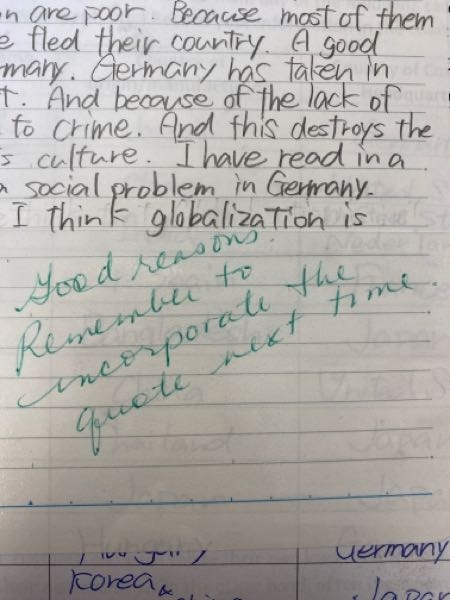 are poor. Because most of them
fled their country. A good
many. Germany has taken in
t. And because of the lack of
to crime. And this destroys the
s culture. I have read in a
social problem in Germany.
I think globalization is
Good reasons.
Remember to
incorporate the
quote next time.
Hungary Germany
Korea &